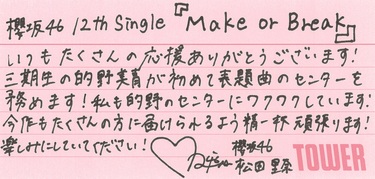 櫻坂46 12th Single『Make or Break』
いつもたくさんの応援ありがとうございます!
三期生の的野美青が初めて表題曲のセンターを
務めます!私も的野のセンターにワクワクしています!
今作もたくさんの方に届けられるよう精一杯頑張ります!
楽しみにしていてください!
櫻坂46
松田里奈
TOWER